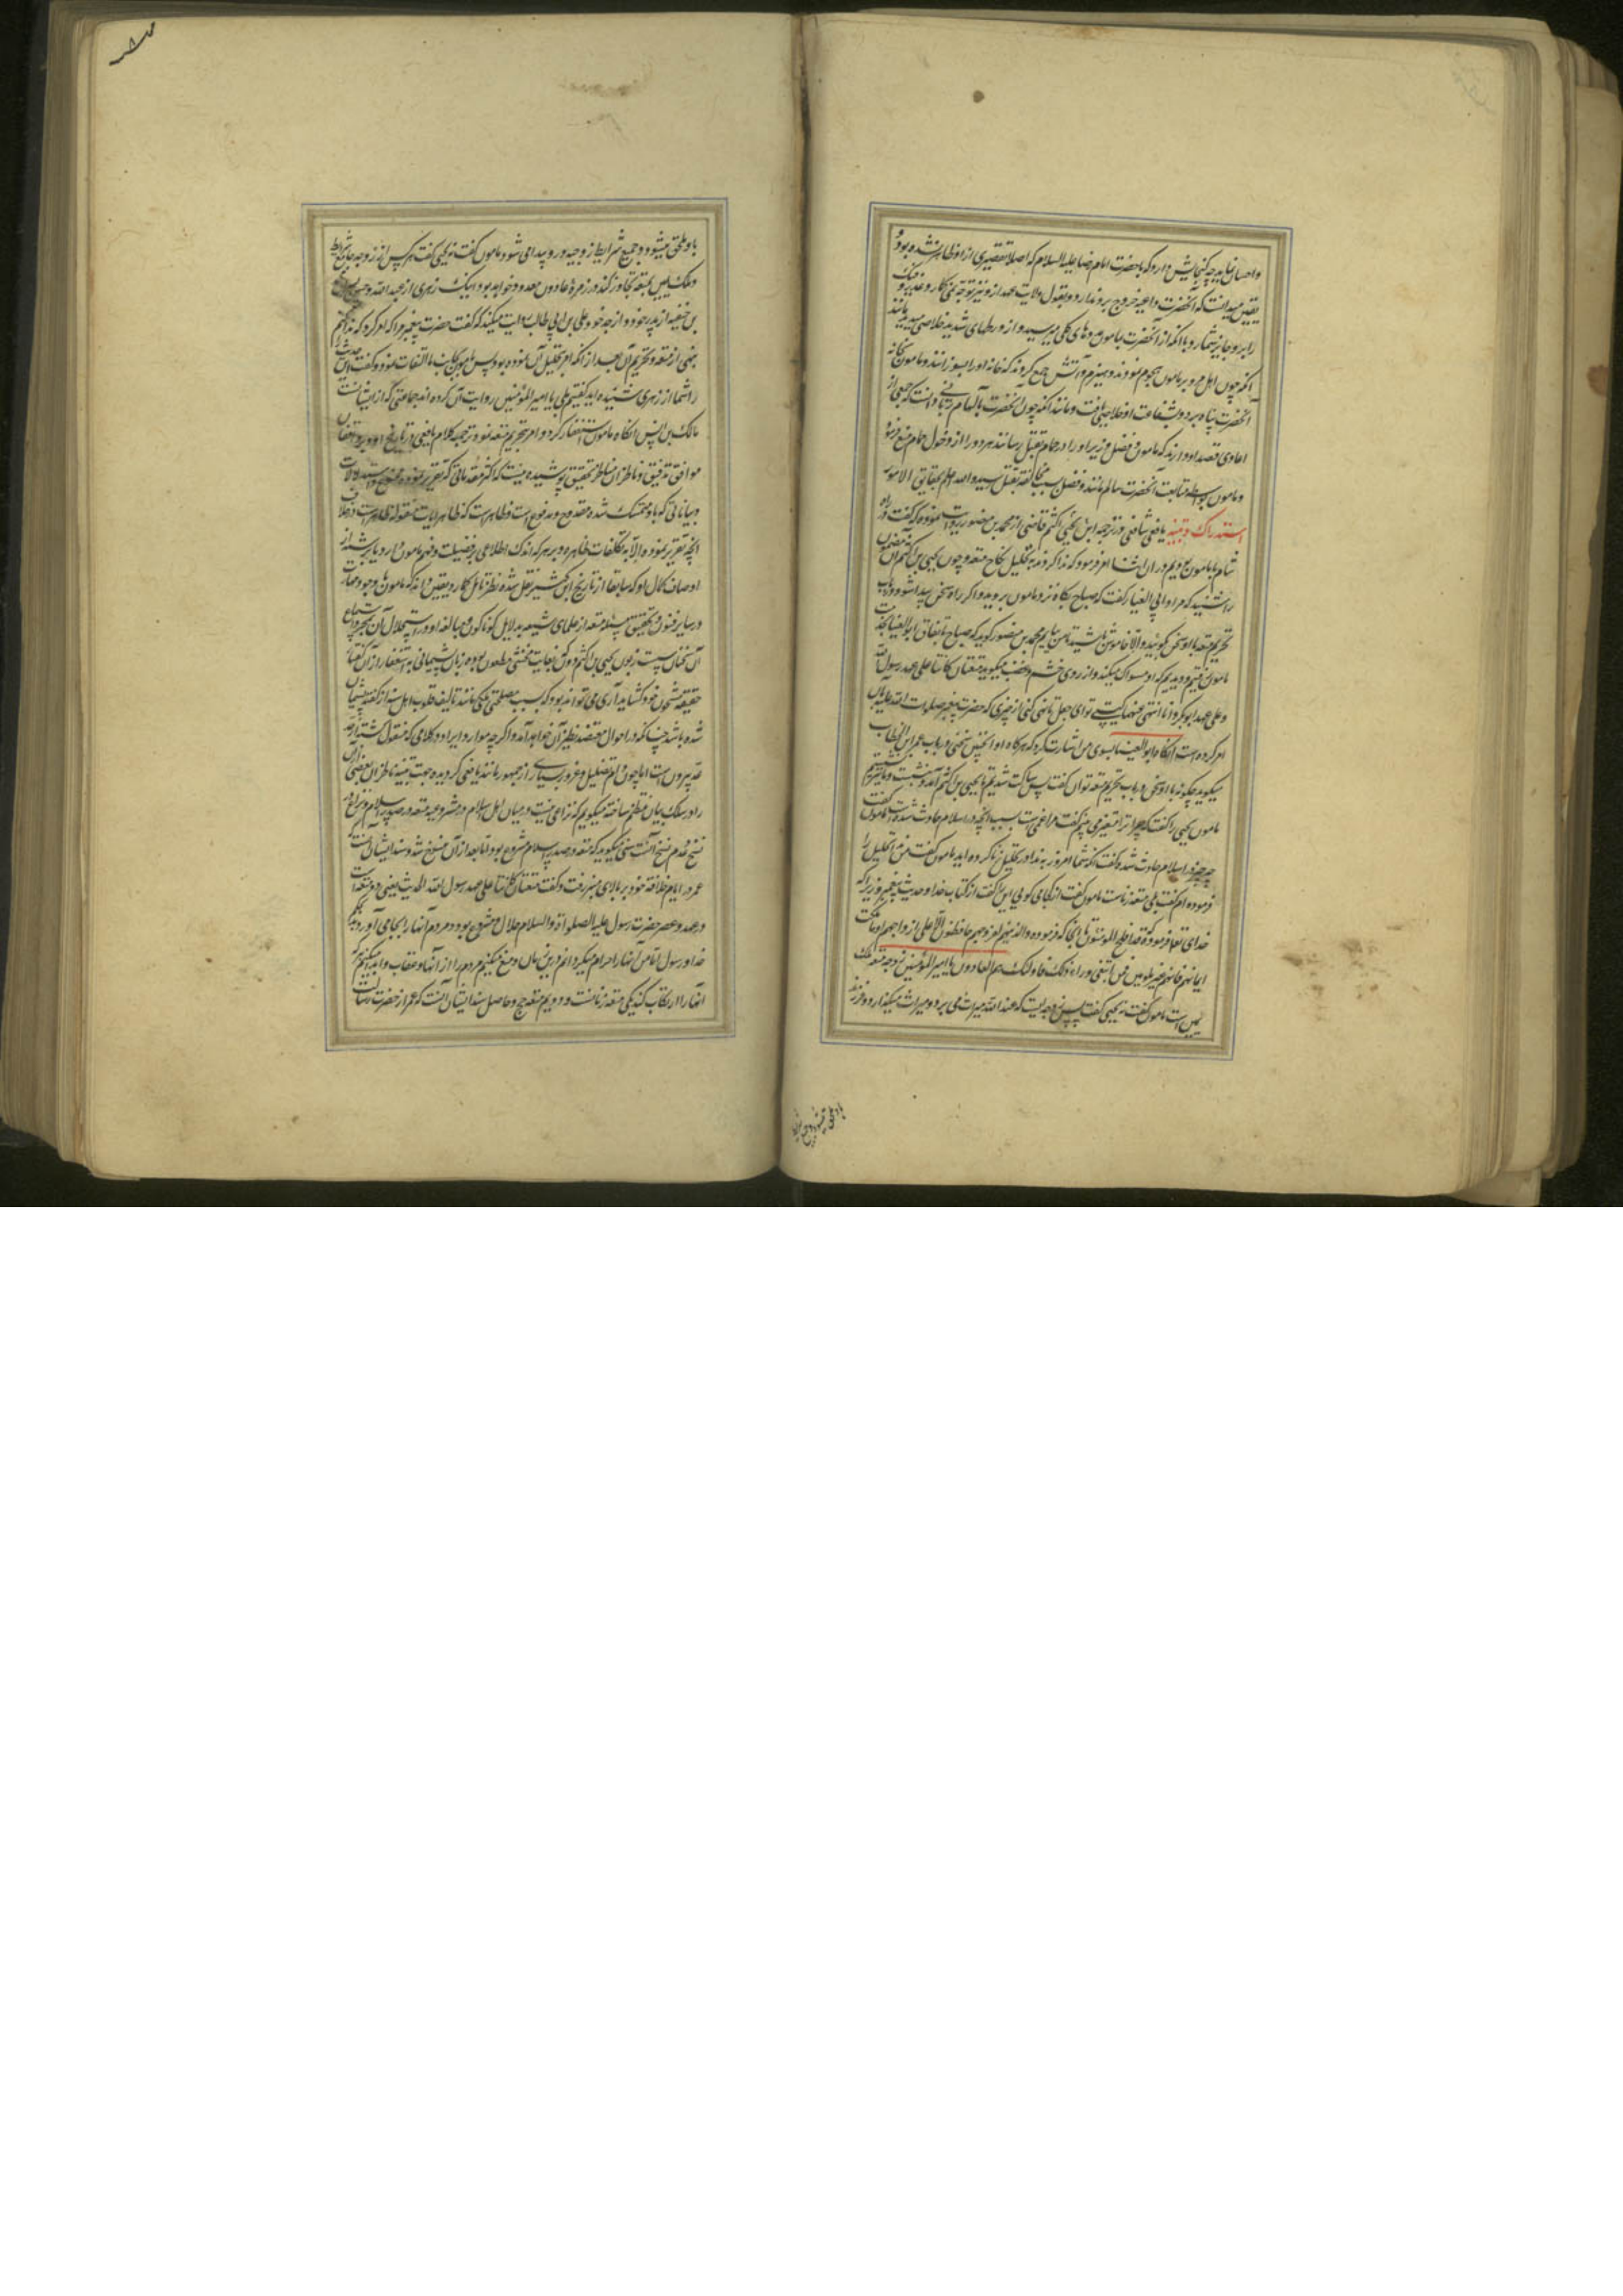 واحسان نماید چه گنجایش دارد که با حضرت امام رضا علیه السلام که اصلا تقصیری از او ظاهر نشده بود و
یقین میدانست که آنحضرت داعیه خروج بر او ندارد و بقبول ولایت عهد از و نیز توجه نمی کارد غدر و فتک
را بر او جایز شمارد با آنکه از آنحضرت بمامون مددهای کلی میرسید و از ورطهای شدید خلاصی میدید مانند
آنکه چون اهل مرو بر مامون هجوم نمودند و هیزم و آتش جمع کردند که خانه او را بسوزانند و مامون بخانه
آنحضرت پناه برد و بشفاعت او خلاصی یافت و مانند آنکه چون آنحضرت بالهام ربانی دانست که جمعی از
اعادی قصد او دارند که مامون و فضل وزیر او را در حمام بقتل رسانند هر دو را از دخول حمام منع فرمود
و مامون بواسطه متابعت آنحضرت سالم ماند و فضل بسبب مخالفت بقتل رسید والله اعلم بحقایق الامور
استدراک و تنبیه یافعی شافعی در ترجمه ابن یحیی اکثم قاضی از محمد بن منصور روایت نموده که گفت در راه
شام با مامون بودیم در آن اثنا امر فرمود که ندا کردند به تحلیل نکاح متعه و چون یحیی بن اکثم آن
را شنید که مرا و ابی العینا گفت که صباح پگاه نزد مامون بروید و اگر راه سخن پیدا شود در باب
تحریم متعه با او سخن بگوئید و الا خاموش باشید تا من بیایم محمد بن منصور گوید که صباح باتفاق ابو العینا بخدمت
مامون رفتیم و دیدیم که او مسواک میکند و از روی خشم و غضب میگوید متعتان کانتا علی عهد رسول الله
و علی عهد ابو بکر و انا انهی عنهما کیستی تو ای جعل تا نهی کنی از چیزی که حضرت پیغمبر صلوات الله علیه بآن
امر کرده است آنگاه ابو العینا بسوی من اشارت کرد که هرگاه او اینچنین سخنی در باب عمر ابن الخطاب
میگوید چگونه با او سخن در باب تحریم متعه توان گفت پس ساکت شدیم تا یحیی بن اکثم آمد و نشست و ما نشستیم
مامون یحیی را گفت که چرا ترا متغیر می بینم گفت مرا غمی است بسبب آنچه در اسلام حادث شده است مامون گفت
چه چیز در اسلام حادث شده گفت آنکه شما امروز به ندا در تحلیل زنا کرده اید مامون گفت من تحلیل زنا
فرموده ام گفت بلی متعه زناست مامون گفت از کجا می گویی این را گفت از کتاب خدا و حدیث پیغمبر زیرا که
خدای تعالی فرموده قد افلح المؤمنون تا بآنجا که فرموده والذینهم لفروجهم حافظون الا علی ازواجهم او ما ملکت
ایمانهم فانهم غیر ملومین فمن ابتغی وراء ذلک فاولئک هم العادون یا امیر المؤمنین زوجه متعه ملک
یمین است مامون گفت نه یحیی گفت پس زوجه ایست که عند الله میراث می برد و میراث میگذارد و فرزند
باو ملحق میشود
باو ملحق میشود و جمیع شرایط زوجیه در و پیدا می شود مامون گفت نه یحیی گفت هر کس از زوجه جامع شرایط
و ملک یمین بمتعه تجاوز کند در زمره عادون معدود خواهد بود اینک زهری از عبد الله و حسن پسران محمد
بن حنفیه از پدر خود و از جد خود علی بن ابی طالب روایت میکند که گفت حضرت پیغمبر مرا که امر کرد که ندا کنم
بنهی از متعه و تحریم آن بعد از آنکه امر بتحلیل آن نموده بود پس مامون بجانب ما التفات نمود و گفت این حدیث
را شما از زهری شنیده اید گفتیم بلی یا امیر المؤمنین روایت آن کرده اند جماعتی که از ایشانست
مالک بن انس آنگاه مامون استغفار کرد و امر بتحریم متعه نمود ترجمه کلام یافعی در تاریخ او و بر واقفان
مواقف تدقیق و ناظران مناظر تحقیق پوشیده نیست که اکثر مقدماتی که تقریر نموده ممنوع و استدلالات
و بیاناتی که باو متمسک شده مقدوح و مدفوع است و ظاهر است که ظاهر آیات منقوله ظاهر است در خلاف
آنچه تقریر نموده الا به تکلفات ظاهره و بر هر که اندک اطلاعی بر فضیلت و فهم مامون دارد یا بر شمه از
اوصاف کمال او که سابقا از تاریخ ابن کثیر نقل شده نظر تامل گمارد یقین داند که مامون با وجود مهارت
در سایر فنون و تحقیق مسئله متعه از علمای شیعه بدلایل گوناگون و مبالغه او در استحلال آن بمجرد استماع
آن سخنان پست زبون یحیی بن اکثم دون که بغایت فحشی مطعون بوده زبان پشیمانی به استغفار از آن گفتار
حقیقه مشحون خود گشاید آری می تواند بود که بسبب مصلحتی ملکی مانند تالیف قلوب اهل سنه از گفته پشیمان
شده باشد چنانکه در احوال معتضد نظیر آن خواهد آمد و اگر چه موارد ایراد در کلامی که منقول گشته از حد
بیرون است اما چون دام تضلیل و غرور بسیاری از جمهور مانند یافعی گردیده جهت تنبیه ناظران بعضی از آن
را در سلک بیان منظم ساخته میگویم که نزاعی نیست در میان اهل اسلام در مشروعیه متعه در صدر اسلام و نزاع در
نسخ و عدم نسخ آنست سنی میگوید که متعه در صدر اسلام مشروع بود اما بعد از آن منسوخ شد و سند ایشان آنست که
عمر در ایام خلافت خود بر بالای منبر رفت و گفت متعتان کانتا علی عهد رسول الله الحدیث یعنی دو متعه است
در عهد و عصر حضرت رسول علیه الصلواة والسلام حلال و مشروع بود و مردم آنها را بجا می آوردند بحکم
خدا و رسول اما من آنها را حرام میگردانم درین زمان و منع میکنم مردم را از آنها و عقاب و ایذا میکنم هر که
آنها را ارتکاب کند یکی متعه زنانست و دویم متعه حج و حاصل سند ایشان آنست که عمر از حضرت رسالت